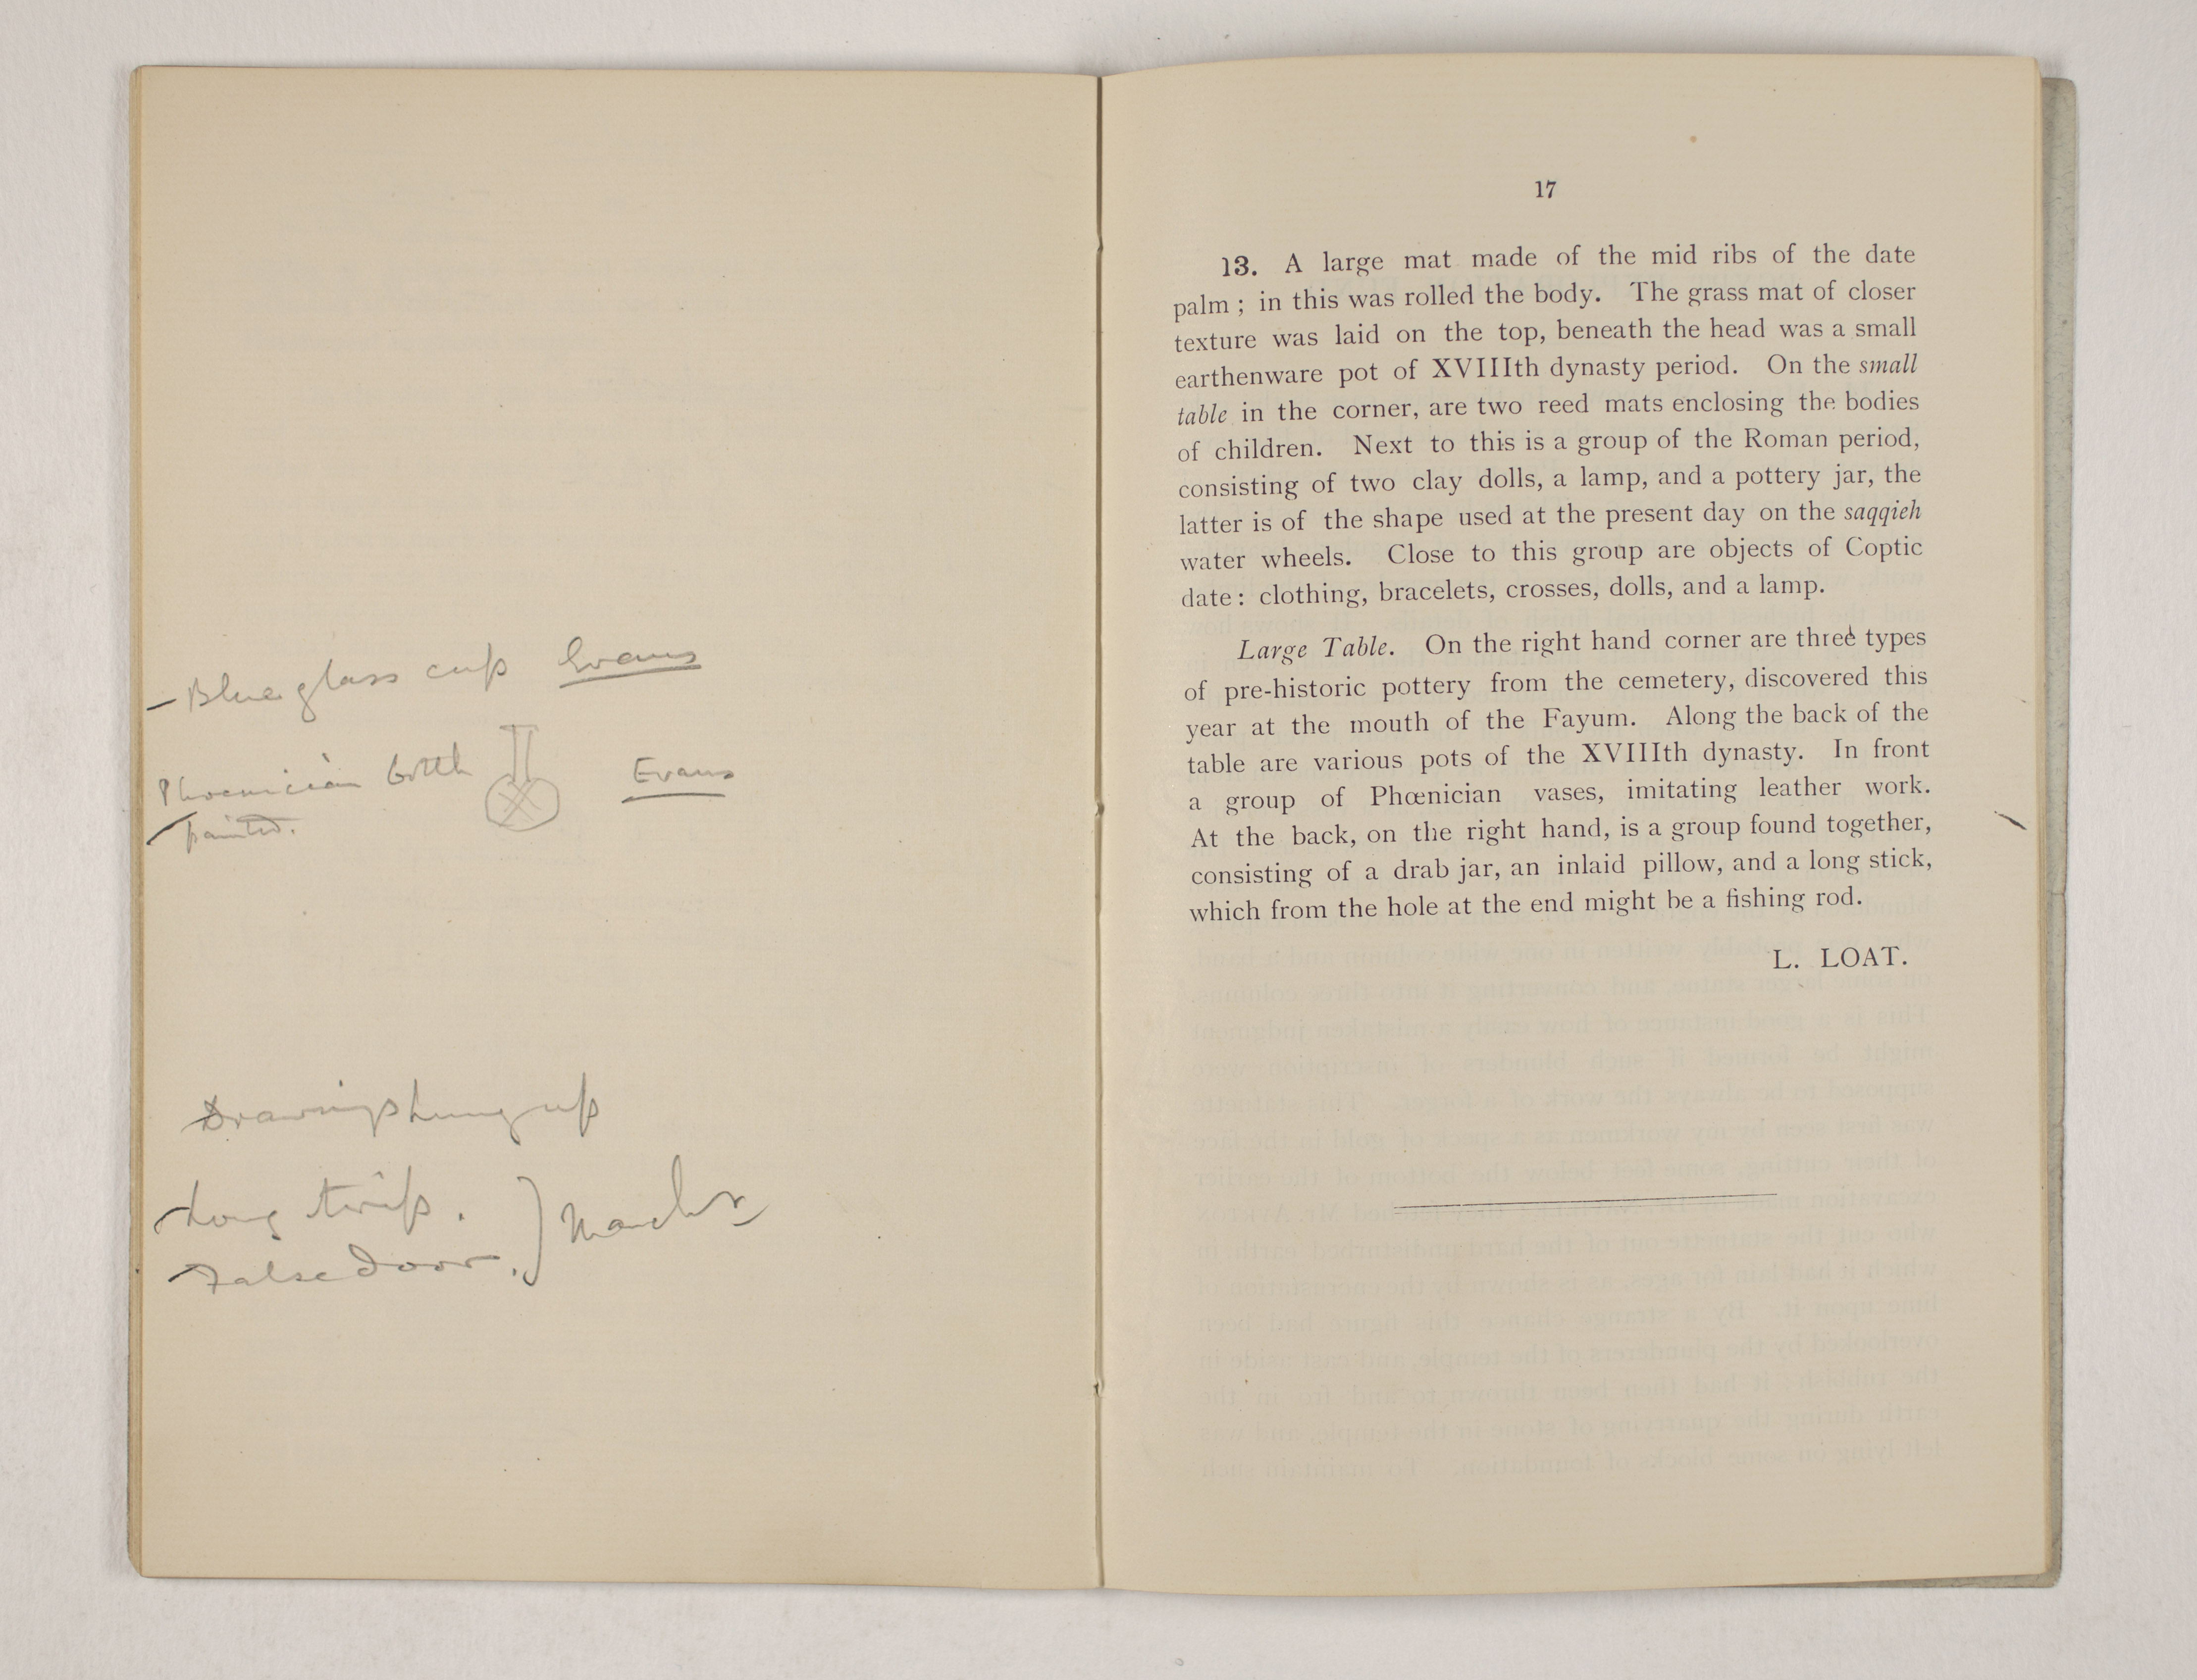 – Blue glass cup Evans
Phoenician bottle Evans
painted.
Drawings hung up
Long strip.
False door.
17
13. A large mat made of the mid ribs of the date
palm ; in this was rolled the body. The grass mat of closer
texture was laid on the top, beneath the head was a small
earthenware pot of XVIIIth dynasty period. On the small
table in the corner, are two reed mats enclosing the bodies
of children. Next to this is a group of the Roman period,
consisting of two clay dolls, a lamp, and a pottery jar, the
latter is of the shape used at the present day on the saqqieh
water wheels. Close to this group are objects of Coptic
date : clothing, bracelets, crosses, dolls, and a lamp.
Large Table. On the right hand corner are three types
of pre-historic pottery from the cemetery, discovered this
year at the mouth of the Fayum. Along the back of the
table are various pots of the XVIIIth dynasty. In front
a group of Phœnician vases, imitating leather work.
At the back, on the right hand, is a group found together,
consisting of a drab jar, an inlaid pillow, and a long stick,
which from the hole at the end might be a fishing rod.
L. LOAT.